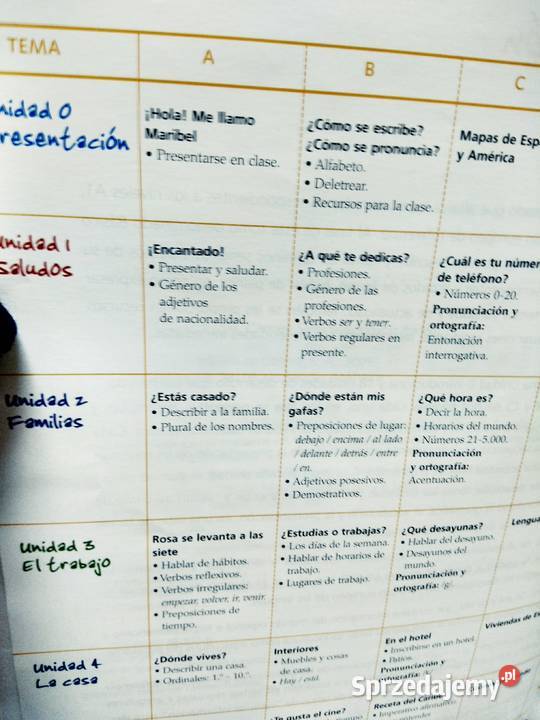 TEMA
A
B
C
Unidad 0
Presentación
¡Hola! Me llamo
Maribel
• Presentarse en clase.
¿Cómo se escribe?
¿Cómo se pronuncia?
• Alfabeto.
• Deletrear.
• Recursos para la clase.
Mapas de Esp
y América
Unidad 1
Saludos
¡Encantado!
• Presentar y saludar.
• Género de los
adjetivos
de nacionalidad.
¿A qué te dedicas?
• Profesiones.
• Género de las
profesiones.
• Verbos ser y tener.
• Verbos regulares en
presente.
¿Cuál es tu númer
de teléfono?
• Números 0-20.
Pronunciación y
ortografía:
Entonación
interrogativa.
Unidad 2
Familias
¿Estás casado?
• Describir a la familia.
• Plural de los nombres.
¿Dónde están mis
gafas?
• Preposiciones de lugar:
debajo / encima / al lado
/ delante / detrás / entre
/ en.
• Adjetivos posesivos.
• Demostrativos.
¿Qué hora es?
• Decir la hora.
• Horarios del mundo.
• Números 21-5.000.
Pronunciación
y ortografía:
Acentuación.
Unidad 3
El trabajo
Rosa se levanta a las
siete
• Hablar de hábitos.
• Verbos reflexivos.
• Verbos irregulares:
empezar, volver, ir, venir.
• Preposiciones de
tiempo.
¿Estudias o trabajas?
• Los días de la semana.
• Hablar de horarios de
trabajo.
• Lugares de trabajo.
¿Qué desayunas?
• Hablar del desayuno.
• Desayunos del
mundo.
Pronunciación y
ortografía: /g/.
Lengua
Unidad 4
La casa
¿Dónde vives?
• Describir una casa.
• Ordinales: 1.º - 10.º.
Interiores
• Muebles y cosas
de casa.
• Hay / está.
En el hotel
• Inscribirse en un hotel.
• Patios.
Pronunciación y
ortografía:
Viviendas de Es
¿Te gusta el cine?
Receta del Caribe
• Imperativo afirmativo.
Sprzedajemy.pl